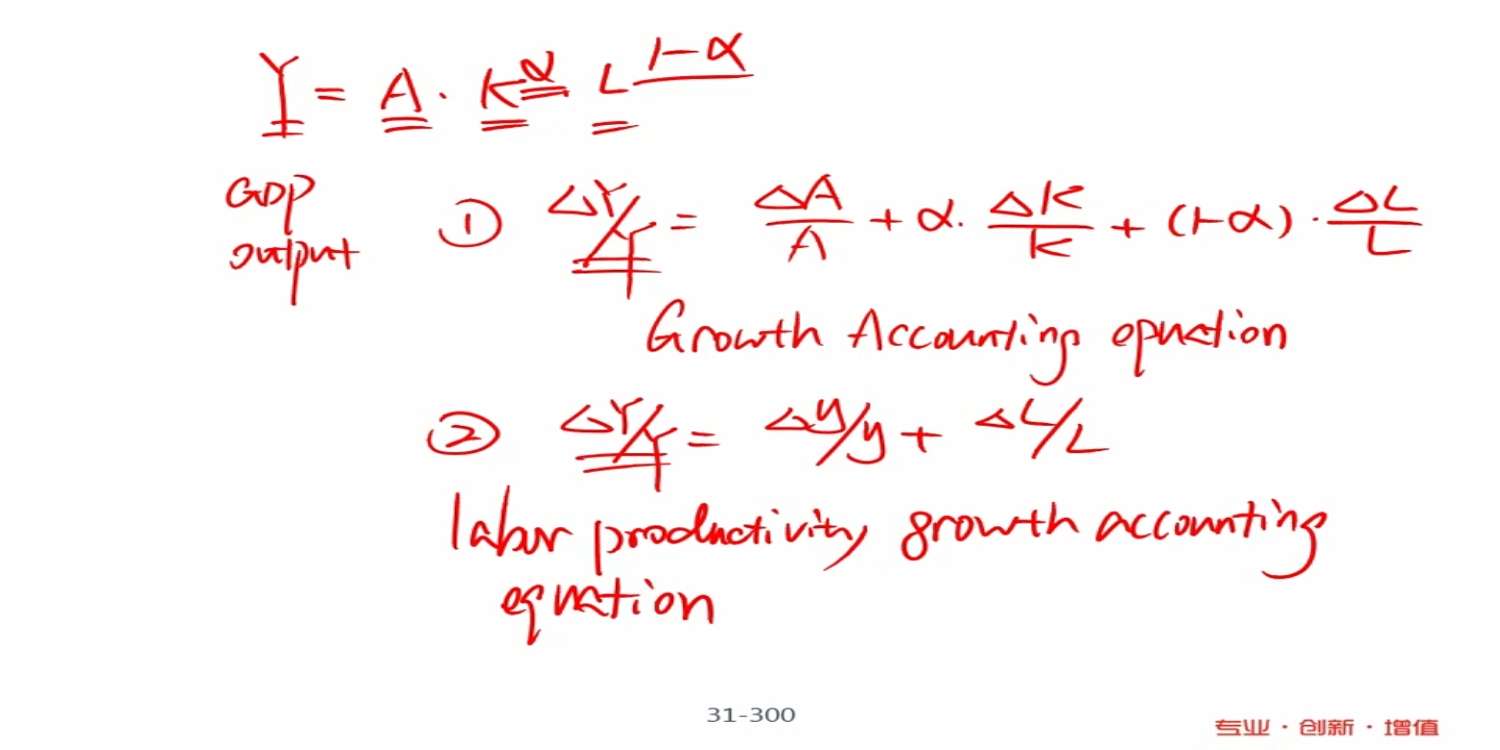 Y = A · K^α L^(1-α)
GDP
output
① ΔY/Y = ΔA/A + α · ΔK/K + (1-α) · ΔL/L
Growth Accounting equation
② ΔY/Y = Δy/y + ΔL/L
labor productivity growth accounting
equation
31-300
专业 · 创新 · 增值